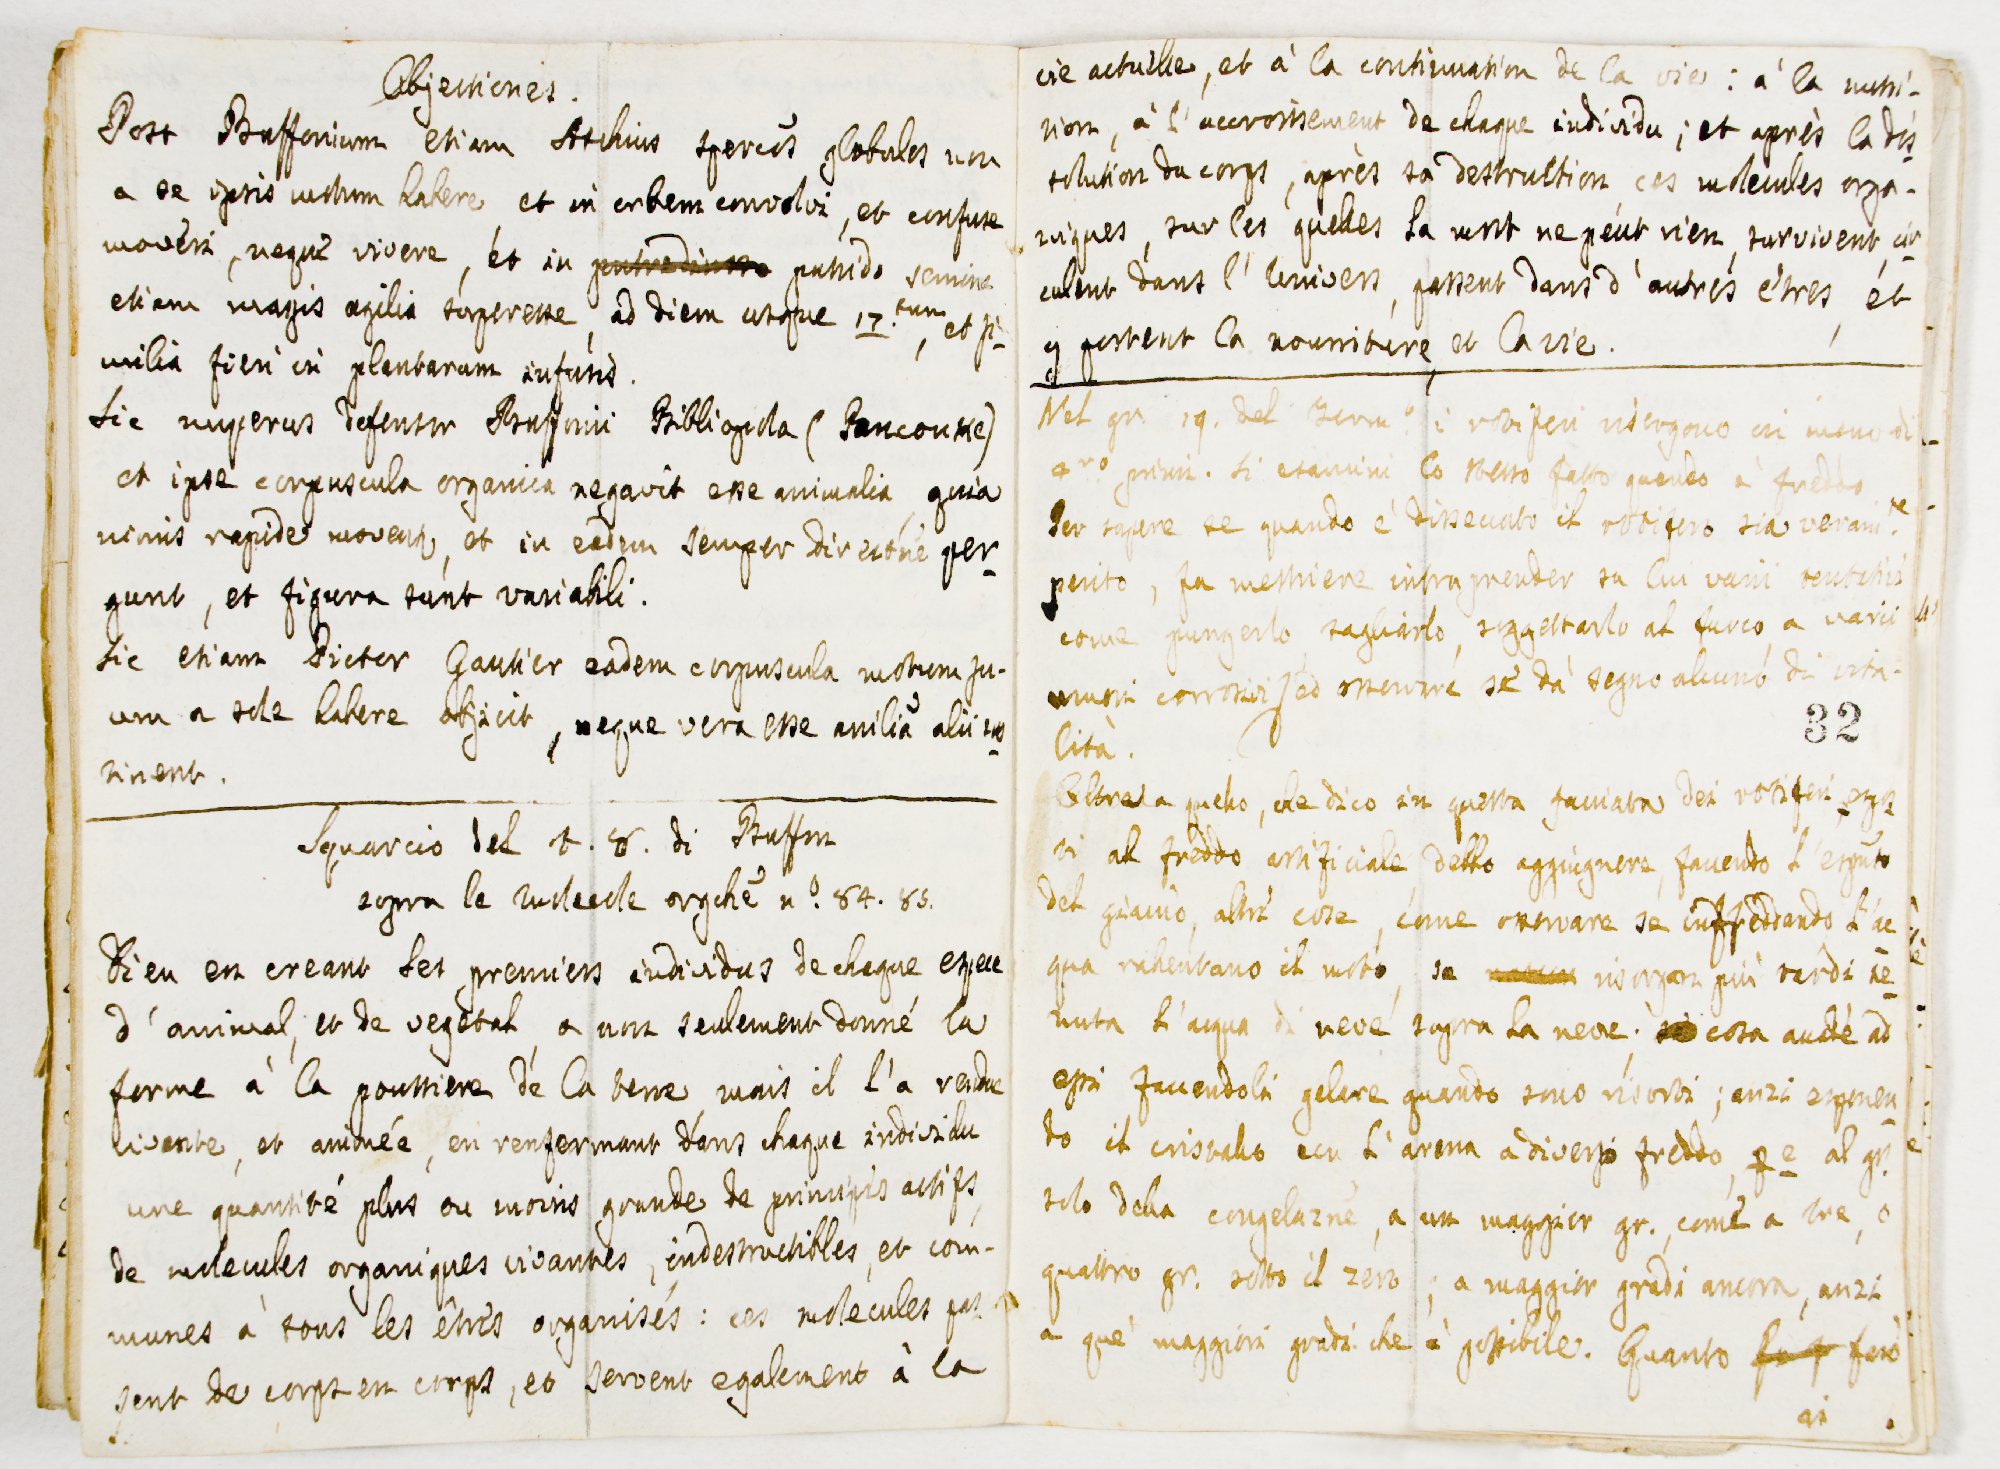 Objectiones.
Post Buffonium etiam Aschius spercos globulos non
a se ipsis motum habere et in orbem convolvi, et confuse
moveri, neque vivere, et in putredine putrido semine
etiam magis agilia superesse ad diem usque 17.tum, et si-
milia fieri in plantarum infusis.
Sic nuperus defensor Buffonii Bibliopola (Pancouke)
et ipse corpuscula organica negavit esse animalia, quia
nimis rapide movent, et in eadem semper direcōne per-
gunt, et figura sunt variabili.
Sic etiam Pictor Gautier eadem corpuscula motum su-
um a sole habere objicit, neque vera esse anilia alii no
sinent.
Squarcio del t. 8. di Buffon
sopra le molecole orgche n.o 84. 85.
Dieu en creant les premiers individus de chaque espece
d'animal, et de vegetal a non seulement donné la
forme à la poussiere de la terre mais il l'a rendue
vivante, et animée, en renfermant dans chaque individu
une quantité plus ou moins grande de principis actifs,
de molecules organiques vivantes, indestructibles, et com-
munes à tous les êtres organisés: ces molecules pas
sent de corps en corps, et servent egalement à la
vie actuelle, et à la continuation de la vie: à la nutri-
tion, à l'accroissement de chaque individu; et après la dis
solution du corps, après sa destruction ces molecules orga-
niques, sur les quelles la mort ne peut rien, survivent, cir
culent dans l'Univers, passent dans d'autres êtres, et
y portent la nourriture, et la vie.
Nel gr. 19. del Term.o i rotiferi risorgono in meno di
4ro primi. Si esamini lo stesso fatto quando è freddo
Per sapere se quando è disseccato il rotifero sia veram.te
perito, fa mestiere intraprender su lui varii tentativi
come pungerlo, tagliarlo, soggettarlo al fuoco, a varii
umori corrosivi, ed osservare se dà segno alcuno di vita-
lità.
32
Oltre a quello, che dico in questa facciata dei rotiferi espo
sti al freddo artificiale debbo aggiugnere, facendo l'esputo
del giaccio, altre cose, come osservare se inffreddando l'ac
qua rallentano il moto, se risorgon più tardi te
nuta l'acqua di neve sopra la neve. cosa accade ad
essi facendoli gelare quando sono risorti; anzi esponen
do il cristallo con l'arena a diverso freddo, p e al gr.
solo della congelazne, a un maggior gr., come a tre, o
quattro gr. sotto il zero; a maggior gradi ancora, anzi
a que' maggiori gradi che è possibile. Quanto però
ai